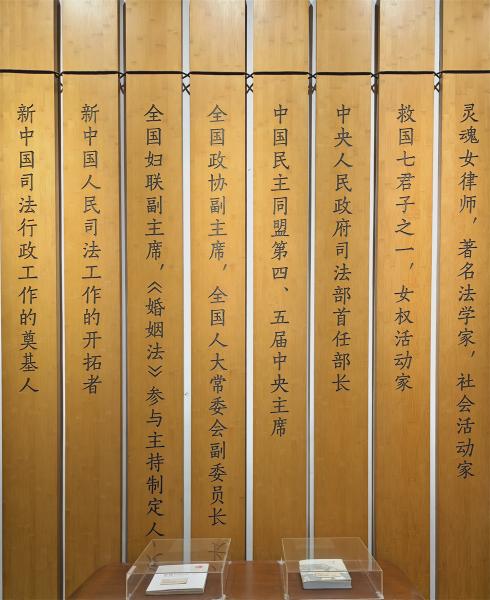 灵魂女律师，著名法学家，社会活动家
救国七君子之一，女权活动家
中央人民政府司法部首任部长
中国民主同盟第四、五届中央主席
全国政协副主席，全国人大常委会副委员长
全国妇联副主席，《婚姻法》参与主持制定人
新中国人民司法工作的开拓者
新中国司法行政工作的奠基人